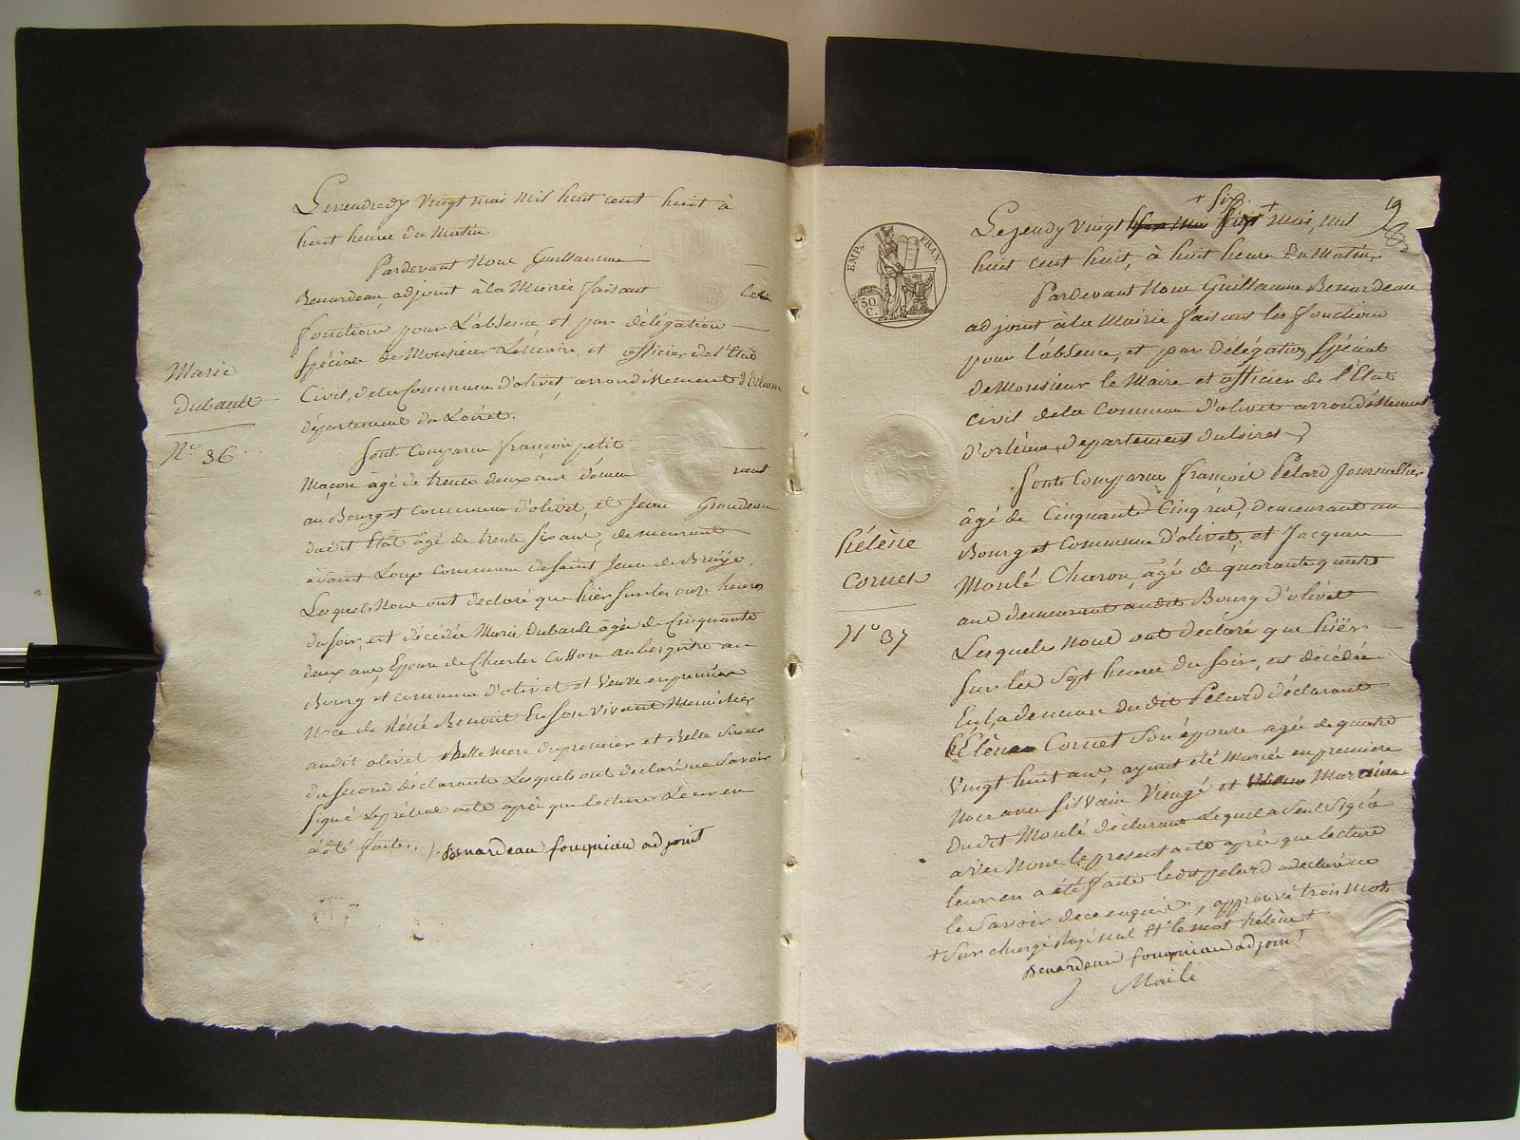 Le vendredy vingt mai mil huit cent huit à
huit heure du matin
Pardevant Nous Guillaume
Benardeau, adjoint à la Mairie faisant les
fonctions pour l'absence, et par délégation
spécial de Monsieur Le Maire, et officier de l'Etat
Civil, de la Commune d'olivet, arrondissement d'Orleans
département du Loiret.
Marie
Dubault
N.° 36
Sont Comparu françois petit
Maçon âgé de trente deux ans demeu rant
au Bourg et commune d'olivet, et Jean Graudeau
dudit Etat âgé de trente six ans, demeurant
Loup commune de saint Jean de Braÿe.
Lesquels Nous ont declaré que hier sur les onze heures
du soir, est décédée Marie Dubault âgée de Cinquante
deux ans Epouse de Charles Cusson aubergiste au
Bourg et commune d'olivet et Veuve en première
Noce de René Benoist En son vivant Menuisier
audit olivet Belle mere du premier et Belle Soeur
du second déclarants Lesquels ont declaré ne savoir
signé Le présent acte après que lecture Leur en
a été faite.
Benardeau fouqniau adjoint
19
+ six +
Le jeudy vingt mai, mil
huit cent huit, à huit heure du Matin,
EMP. FRAN.
50 C.
Pardevant Nous Guillaume Benardeau
adjoint à la Mairie faisant les fonctions
pour l'absence, et par délégation spécial
de Monsieur le Maire et officier de l'Etat
civil de la Commune d'olivet arrondissement
d'orléans, departement du Loiret
Sont Comparu françois Pelard Journallier
âgé de Cinquante Cinq ans, demeurant au
Bourg et Commune d'olivet, et Jacques
Moulé Charon, âgé de quarante quatre
ans demeurant audit Bourg d'olivet
Hélène
Cornet
N° 37
Lesquels Nous ont declaré que hiër
sur les Sept heures du soir, est décédée
En la demeure dudit Pelard déclarant
hÉlène Cornet Son épouse agée de quatre
Vingt huit ans, ayant été Mariée en premiere
Noce avec silvain Viengé et Maraine
Dudit Moulé déclarant Lequel a seul signé
avec Nous le present acte après que lecture
leur en a été faite ledit pelard a declaré ne
le savoir de ce enquis, approuvé trois mots
+ Surchargés et le mot hélène +
Benardeau fouqniau adjoint
Moulé